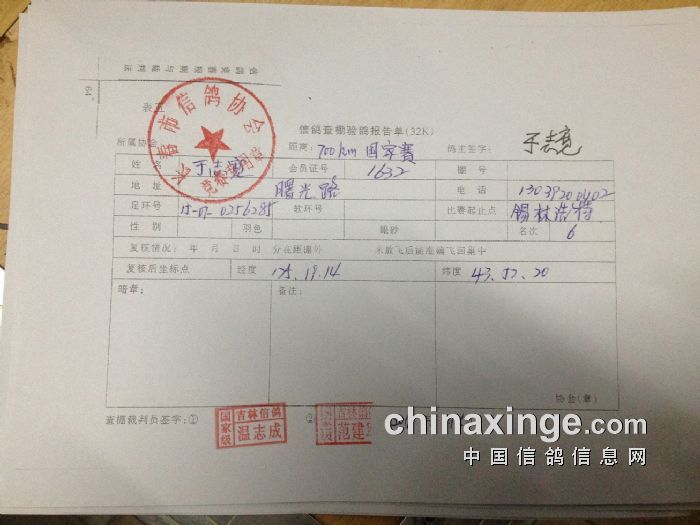 信鸽竞赛规则与裁判法
64
表五
长春市信鸽协会
信鸽查棚验鸽报告单(32K)
所属协会 距离: 700km 国家赛 鸽主签字: 于志亮
姓名 于志亮 会员证号 1632 棚号
地址 曙光路 电话
足环号 15-07-0256285 软环号 比赛起止点 锡林浩特
性别 羽色 眼砂 名次 6
复核情况: 年 月 日 时 分在距棚外 米放飞后能准确飞回巢中
复核后坐标点 经度 125.19.14 纬度 43.52.20
暗章: 备注:
协会(章)
查棚裁判员签字:① 国家级 吉林信鸽 温志成 ② 国家级 吉林信鸽 范建
chinaxinge.com
中国信鸽信息网